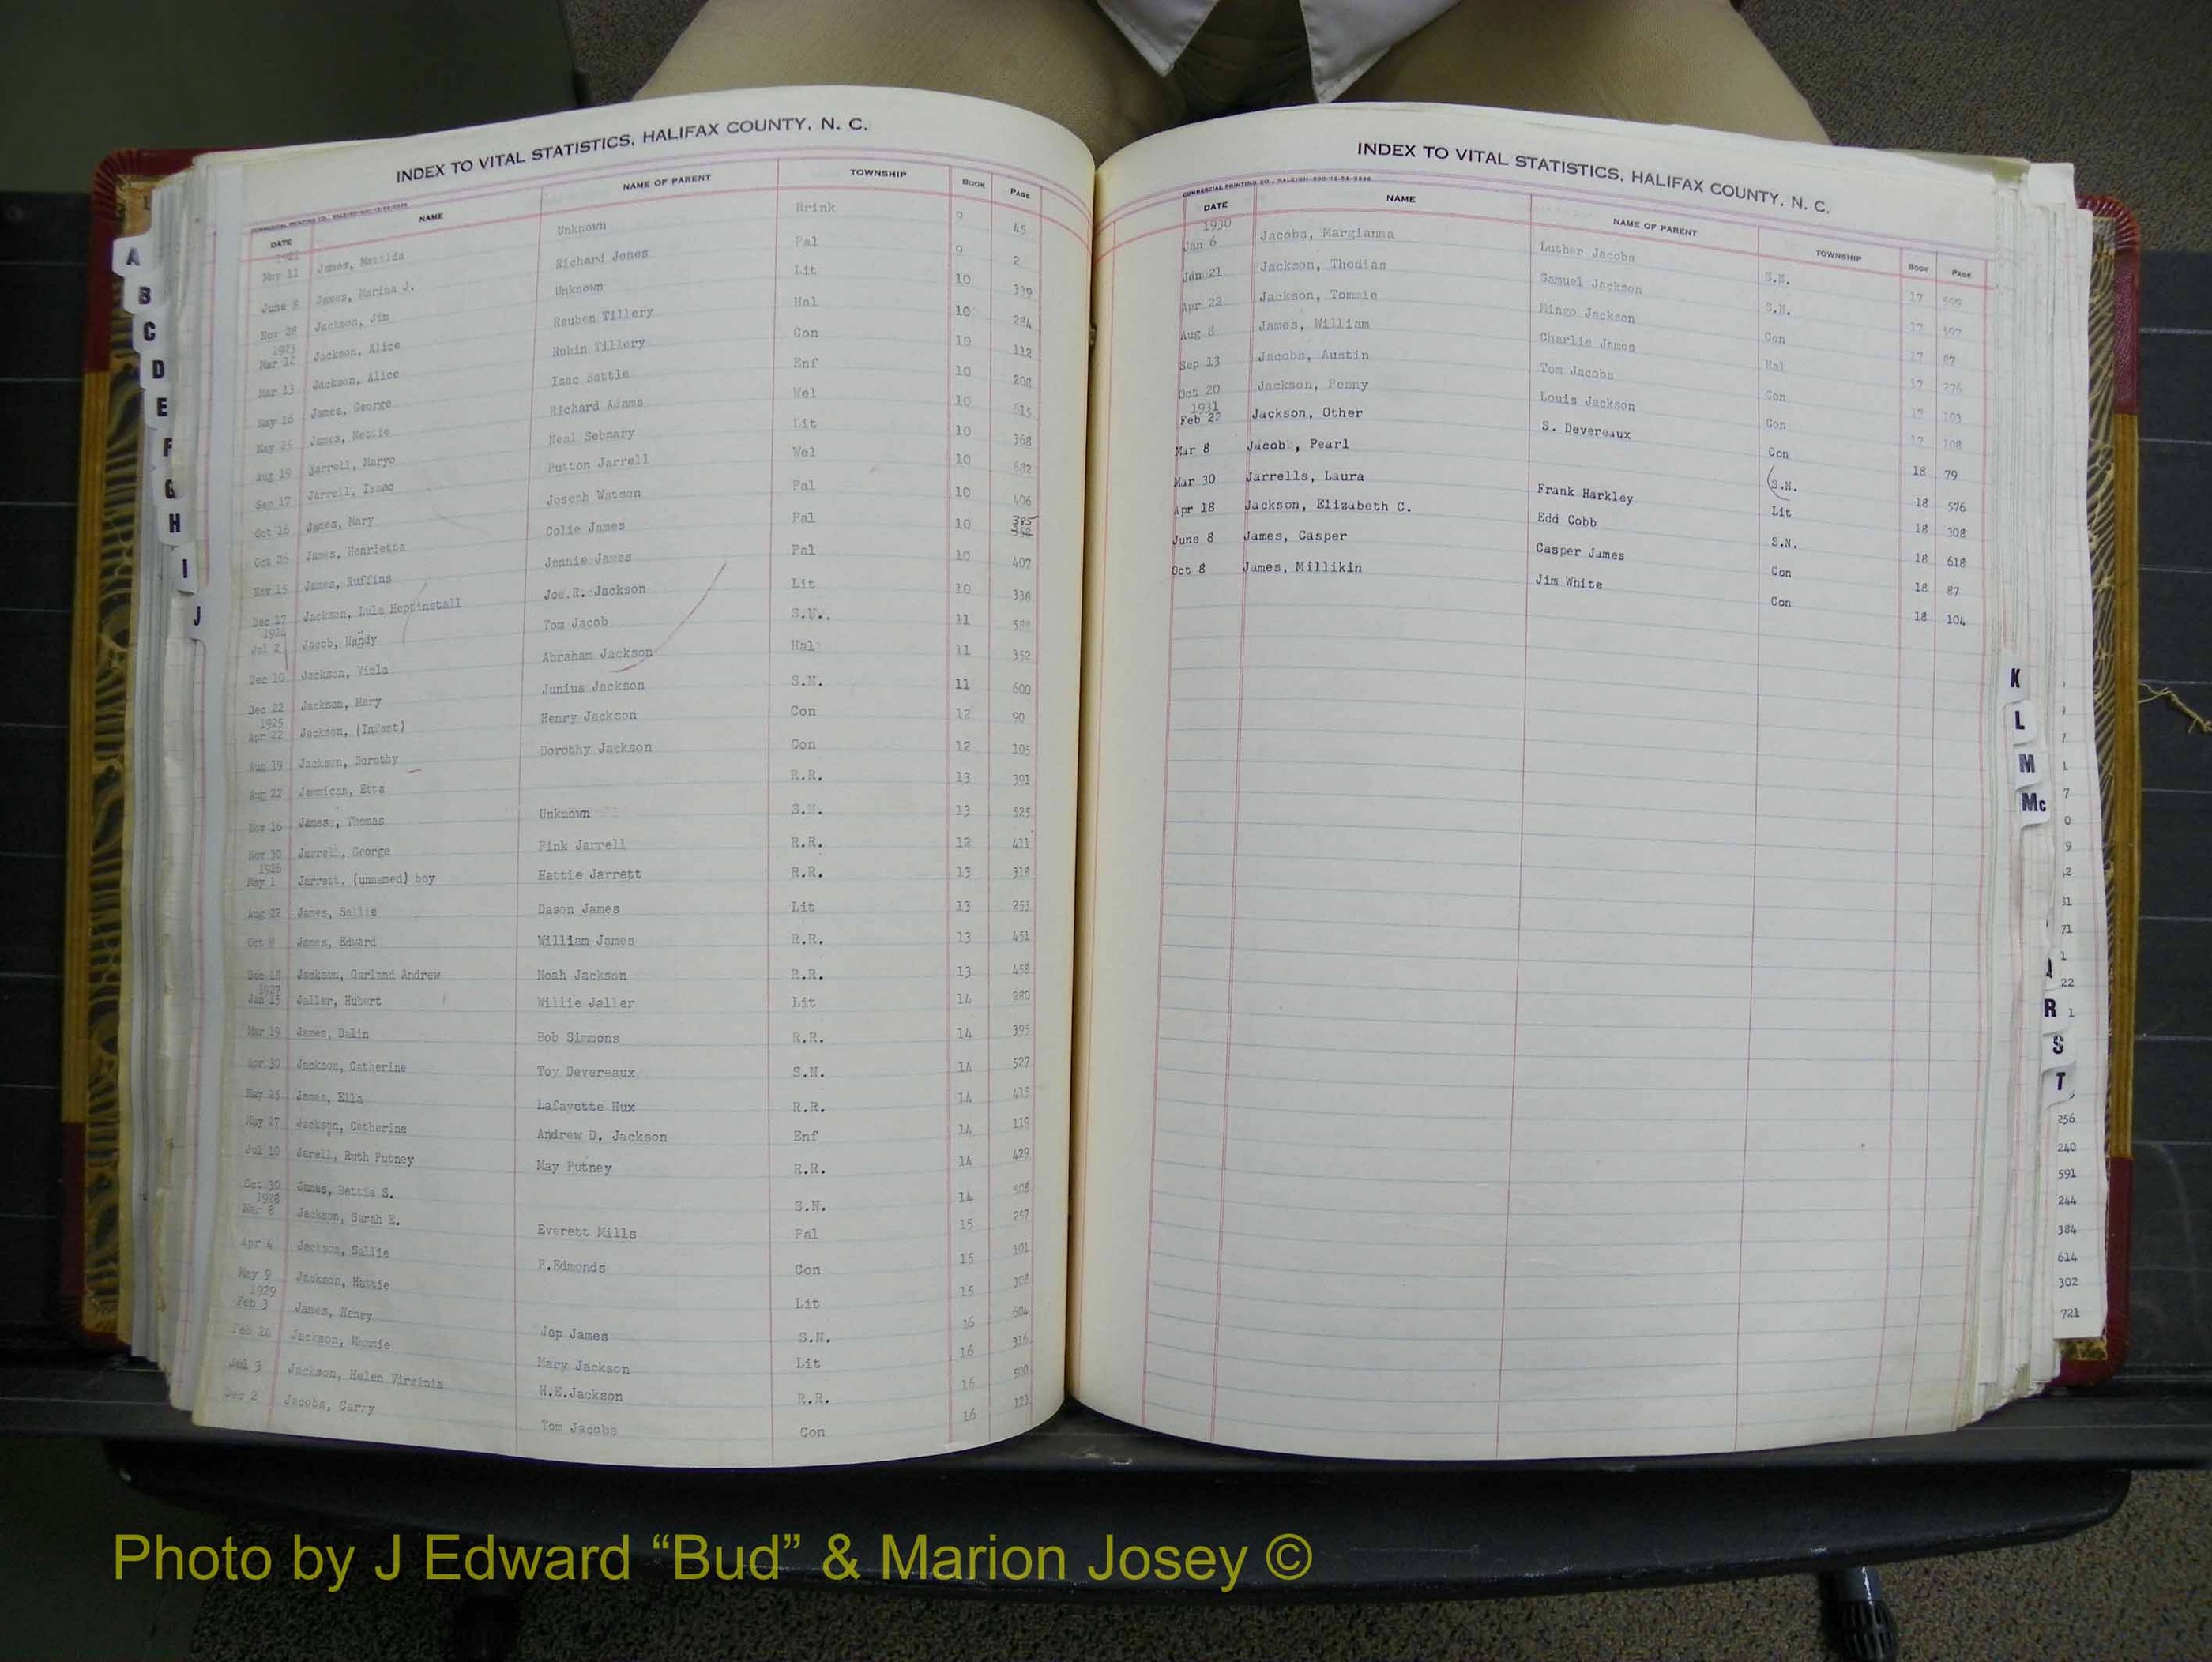 INDEX TO VITAL STATISTICS, HALIFAX COUNTY, N. C.
DATE NAME NAME OF PARENT TOWNSHIP BOOK PAGE
1922
May 11 James, Matilda Unknown Brink 9 45
June 8 James, Marina J. Richard Jones Pal 9 2
Nov 28 Jackson, Jim Unknown Lit 10 339
1923
Mar 12 Jackson, Alice Reuben Tillery Hal 10 284
Mar 13 Jackson, Alice Rubin Tillery Con 10 112
May 16 James, George Isac Battle Enf 10 208
May 25 James, Nettie Richard Adams Wel 10 615
Aug 19 Jarrell, Maryo Neal Lit 10 368
Sep 17 Jarrell, Isaac Putton Jarrell Wel 10 682
Oct 16 James, Mary Joseph Watson Pal 10 406
Oct 26 James, Henrietta Colie James Pal 10 395
Nov 15 James, Ruffins Jennie James Pal 10 407
Dec 17 Jackson, Lula Heptinstall Joe.R. Jackson Lit 10 338
1924
Jul 2 Jacob, Handy Tom Jacob 11 588
Dec 10 Jackson, Viola Abraham Jackson Hal 11 352
Dec 22 Jackson, Mary Junius Jackson S.N. 11 600
1925
Apr 22 Jackson, (Infant) Henry Jackson Con 12 90
Aug 19 Jackson, Dorothy Dorothy Jackson Con 12 105
Aug 22 Etta R.R. 13 391
Nov 16 James, Thomas Unknown S.N. 13 525
Nov 30 Jarrell, George Pink Jarrell R.R. 12 411
1926
May 1 Jarrett, (unnamed) boy Hattie Jarrett R.R. 13 318
Aug 22 James, Sallie Dason James Lit 13 253
Oct 8 James, Edward William James R.R. 13 451
Dec 18 Jackson, Garland Andrew Noah Jackson R.R. 13 458
1927
Jan 15 Jaller, Hubert Willie Jaller Lit 14 280
Mar 19 James, Dalin Bob Simmons R.R. 14 395
Apr 30 Jackson, Catherine Toy Devereaux S.N. 14 527
May 25 James, Ella Lafayette Hux R.R. 14 415
May 27 Jackson, Catherine Andrew D. Jackson Enf 14 119
Jul 10 Jarell, Ruth Putney May Putney R.R. 14 429
Oct 30 James, Bettie S. S.N. 14 508
1928
Mar 8 Jackson, Sarah E. Everett Mills Pal 15 297
Apr 4 Jackson, Sallie P.Edmonds Con 15 101
May 9 Jackson, Hattie Lit 15 308
1929
Feb 3 James, Henry Jep James S.N. 16 604
Feb 24 Jackson, Mammie Mary Jackson Lit 16 316
Jul 3 Jackson, Helen Virginia H.E.Jackson R.R. 16 500
Dec 2 Jacobs, Carry Tom Jacobs Con 16 123
INDEX TO VITAL STATISTICS, HALIFAX COUNTY, N. C.
DATE NAME NAME OF PARENT TOWNSHIP BOOK PAGE
1930
Jan 6 Jacobs, Margianna Luther Jacobs S.N. 17 599
Jan 21 Jackson, Thodias Samuel Jackson S.N. 17 597
Apr 22 Jackson, Tommie Mingo Jackson Con 17 87
Aug 8 James, William Charlie James Hal 17 276
Sep 13 Jacobs, Austin Tom Jacobs Con 17 103
Oct 20 Jackson, Penny Louis Jackson Con 17 108
1931
Feb 22 Jackson, Other S. Devereaux Con 18 79
Mar 8 Jacobs, Pearl S.N. 18 576
Mar 30 Jarrells, Laura Frank Harkley Lit 18 308
Apr 18 Jackson, Elizabeth C. Edd Cobb S.N. 18 618
June 8 James, Casper Casper James Con 18 87
Oct 8 James, Millikin Jim White Con 18 104
A
B
C
D
E
F
G
H
I
J
K
L
M
Mc
R
S
T
256
240
591
244
384
614
302
721
Photo by J Edward “Bud” & Marion Josey ©